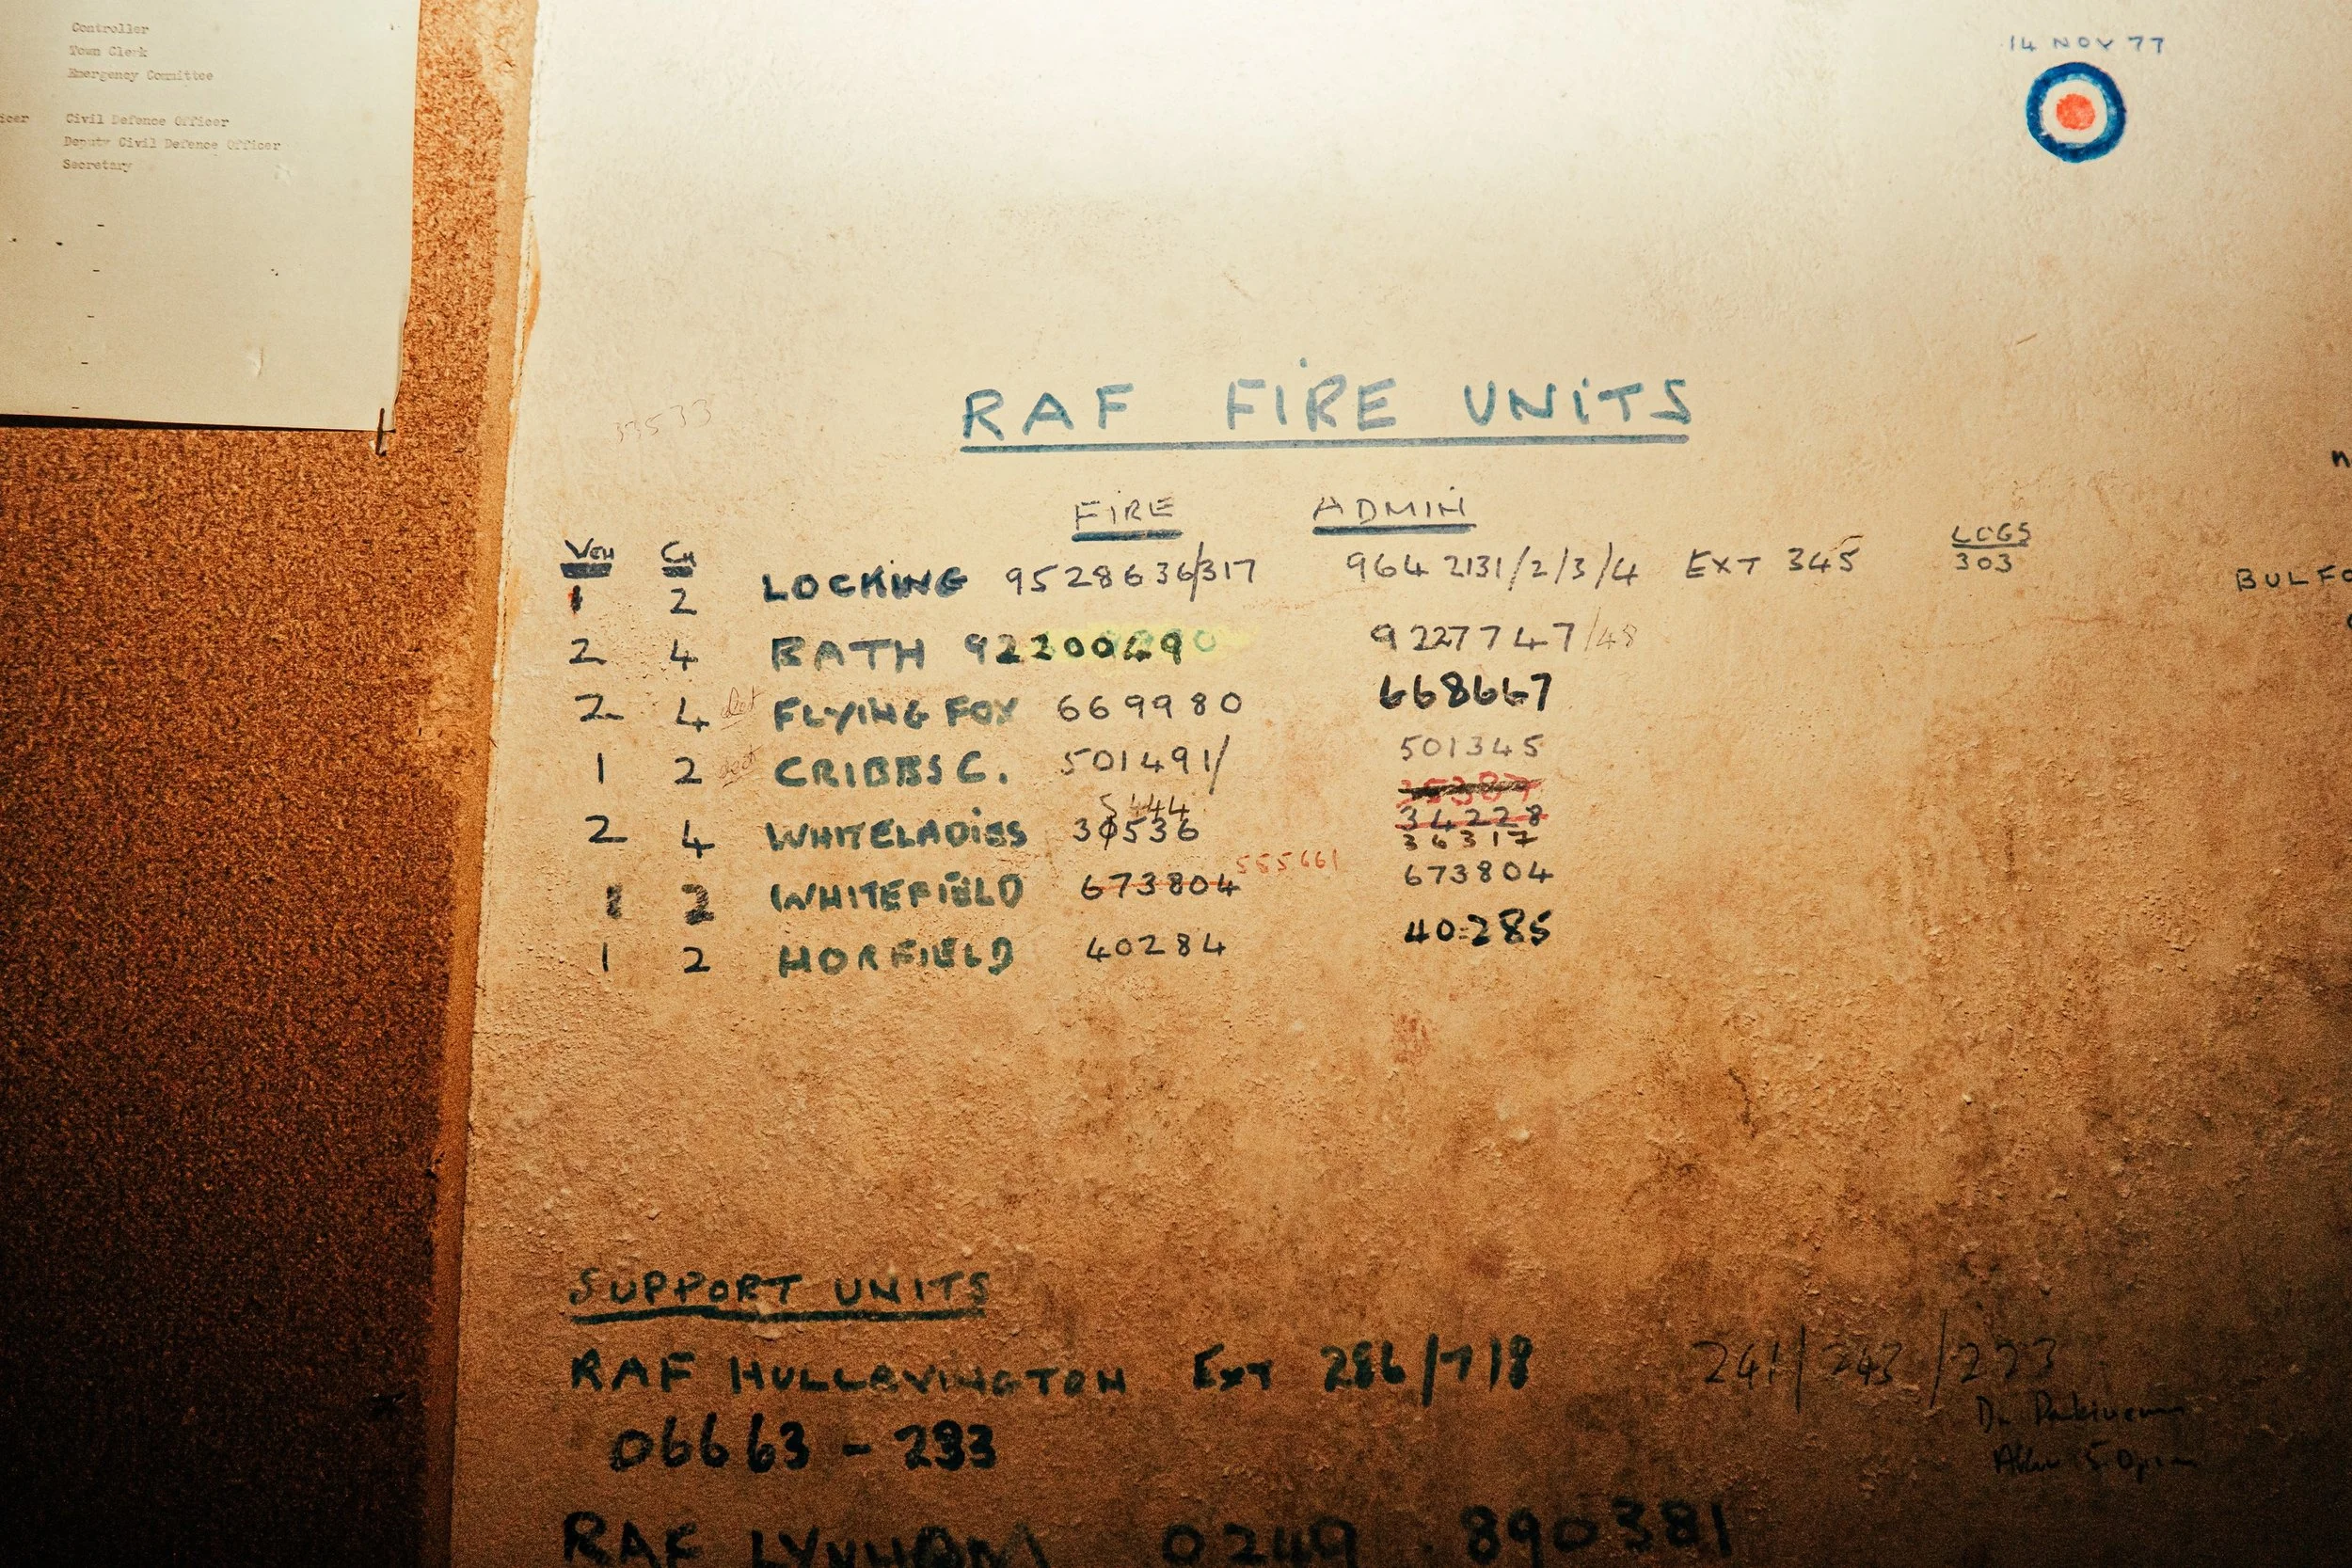 Controller
Town Clerk
Emergency Committee
icer Civil Defence Officer
Deputy Civil Defence Officer
Secretary
14 NOV 77
33533
RAF FIRE UNITS
FIRE ADMIN
VEH CH LOGS
LOCKING 9528636/317 964 2131/2/3/4 EXT 345 303
1 2
BULFO
2 4 BATH 92200690 9227747/48
2 4 det FLYING FOX 669980 668667
1 2 det CRIBBS C. 501491/ 501345
5444
34228
2 4 WHITELADIES 30536 36317
555661
1 2 WHITEFIELD 673804 673804
1 2 HORFIELD 40284 40285
SUPPORT UNITS
RAF HULLAVINGTON EXT 286/7/8 241/243/223
06663-233
RAF LYNHAM 0249 890381